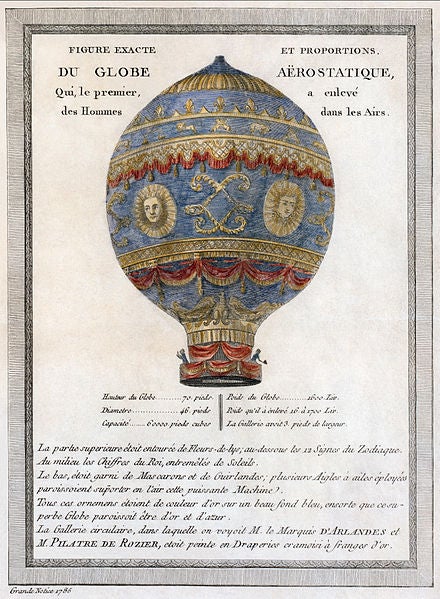 FIGURE EXACTE ET PROPORTIONS,
DU GLOBE AËROSTATIQUE,
Qui, le premier, a enlevé
des Hommes dans les Airs.
Hauteur du Globe..........70 pieds
Diametre..............46. pieds
Capacité......60000 pieds cubes
Poids du Globe..........1600 Liv.
Poids qu'il à enlevé 16 à 1700 Liv.
La Gallerie avoit 3. pieds de largeur.
La partie superieure étoit entourée de Fleurs-de-lys, au-dessous les 12 Signes du Zodiaque.
Au milieu les Chiffres du Roi, entremêlés de Soleils.
Le bas, étoit garni de Mascarons et de Guirlandes, plusieurs Aigles à ailes éployées
paroissoient supórter en l'air cette puissante Machine).
Tous ces ornemens étoient de couleur d'or sur un beau fond bleu, ensorte que ce su-
perbe Globe paroissoit être d'or et d'azur.
La Gallerie circulaire, dans laquelle on voyoit M. le Marquis D'ARLANDES et
M. PILATRE DE ROZIER, etoit peinte en Draperies cramoisi à franges d'or.
Grande Notice 1786